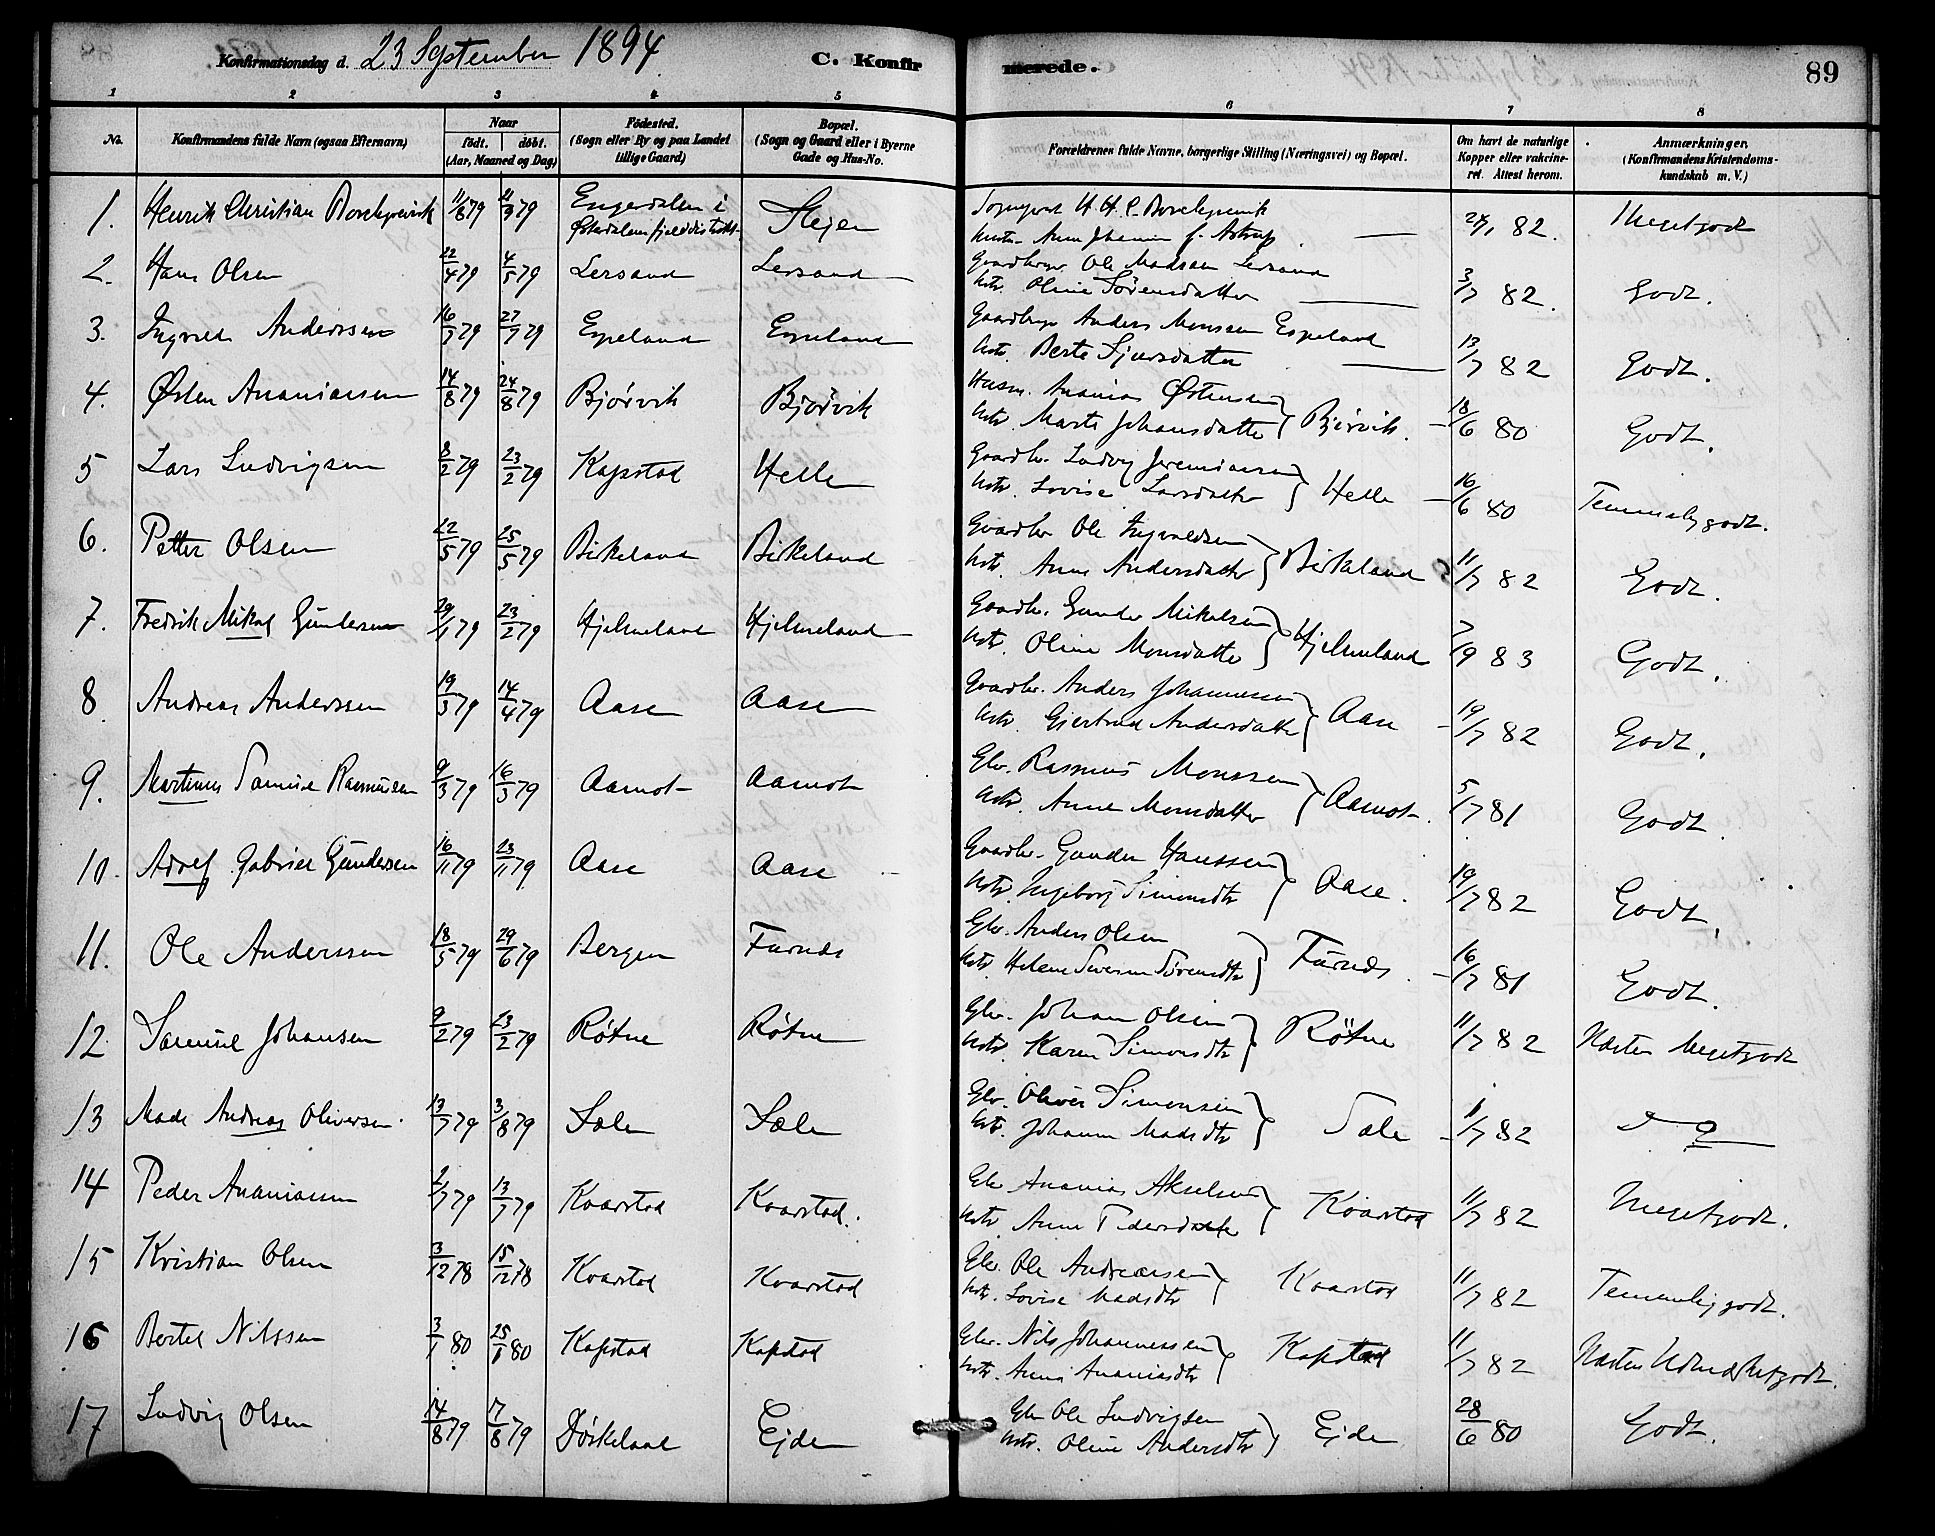 Konfirmationsdag d. 23 September 1894 C. Konfirmerede. 89
1 2 3 4 5 6 7 8
No. Konfirmandens fulde Navn (ogsaa Efternavn) Naar født. døbt. (Aar, Maaned og Dag) Fødested. (Sogn eller By og paa Landet tillige Gaard) Bopæl. (Sogn og Gaard eller i Byerne Gade og Hus-No. Forældrenes fulde Navne, borgerlige Stilling (Næringsvei) og Bopæl. Om havt de naturlige Kopper eller vakcineret. Attest herom. Anmærkninger. (Konfirmandens Kristendomskundskab m. V.)
1. Henrik Christian Borchgrevink 11/8 79 21/9 79 Engerdalen i Østerdalens fjelddistrikt. Slejen Sognepræst H. H. C. Borchgrevink
Hustr. Anna Johanna f. Astrup — 82. Megetgodt
2. Hans Olsen 22/4 79 4/5 79 Lersand Lersand Gaardbruger Ole Madssen Lersand
Hstr. Oline Sørensdatter — 3/7 82. Godt.
3. Ingvald Anderssen 16/7 79 27/7 79 Espeland Espeland Gaardbruger Anders Monssen Espeland
Hstr. Berte Sjursdatter — 13/7 82 Godt.
4. Østen Ananiassen 14/8 79 24/8 79 Bjørvik Bjørvik Husm. Ananias Østensen
Hstr. Marte Johansdatter Bjørvik. 18/6 80 Godt.
5 Lars Ludvigsen 8/2 79 23/2 79 Kapstad Helle Gaardbr. Ludvig Jeremiassen
Hstr. Lovise Larsdatter Helle 16/6 80 Temmeligodt.
6. Petter Olsen 22/5 79 25/5 79 Birkeland Birkeland Gaardbr Ole Ingvaldsen
Hstr. Anne Andersdatter Birkeland 11/7 82 Godt.
7. Fredrik Mikal Gundersen 29/1 79 23/2 79 Hjelmeland Hjelmeland Gaardbr. Gunder Mikelsen
Hstr. Oline Monsdatter Hjelmeland 7/9 83 Godt.
8. Andreas Anderssen 19/3 79 14/4 79 Aase Aase Gaardbr. Anders Johannessen
Hstr. Gjertrud Andersdatter Aase 19/7 82 Godt.
9. Martinus Samuel Rasmussen 9/3 79 16/3 79 Aamot Aamot Gbr. Rasmus Monssen
Hstr. Anne Monsdatter Aamot. 5/7 81 Godt.
10. Adolf Gabriel Gundersen 16/11 79 23/11 79 Aase Aase Gaardbr. Gunder Hanssen
Hstr. Ingeborg Simonsdtr Aase. 19/7 82 Godt.
11. Ole Anderssen 18/5 79 29/6 79 Bergen Furnes Gbr. Anders Olsen
Hstr. Helene Sørensdtr Furnes. 16/7 81 Godt.
12 Samuel Johansen 9/2 79 23/2 79 Røtne Røtne Gbr. Johan Olsen
Hstr. Karen Simonsdtr Røtne 11/7 82 Næsten Megetgodt
13 Mads Andreas Oliversen. 13/7 79 3/8 79 Sæle Sæle Gbr. Oliver Simonsen
Hstr. Johanne Madsdtr Sæle 82
14 Peder Ananiassen 2/7 79 13/7 79 Kvarstad Kvarstad. Gbr Ananias Akselsen
Hstr. Anne Pedersdatter Kvarstad 11/7 82 Megetgodt.
15 Kristian Olsen 3/12 78 15/12 78 Kvarstad Kvarstad Gbr. Ole Andreassen
Hstr. Lovise Madsdtr Kvarstad 11/7 82 Temmeligodt.
16 Bertel Nilssen 3/1 80 25/1 80 Kapstad Kapstad Gbr. Nils Johannessen
Hstr. Anne Ananiasdtr Kapstad 11/7 82 Næsten Udmerketgodt.
17 Ludvig Olsen 14/8 79 17/8 79 Dørkeland Ejde Gbr Ole Ludvigsen
Hstr. Oline Andersdtr Ejde 28/6 80 Godt.